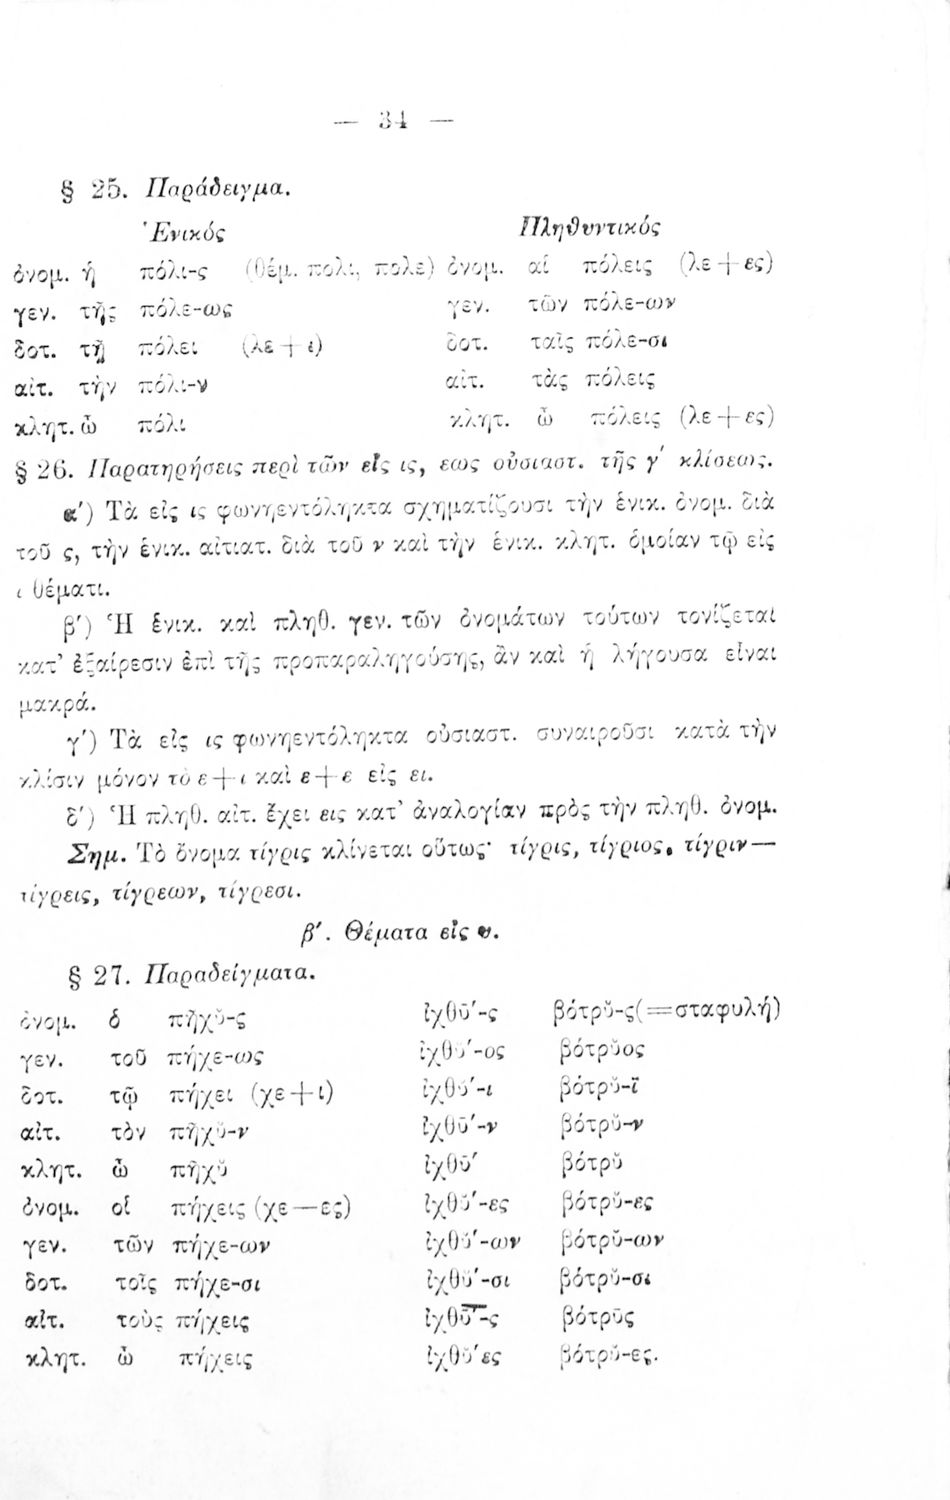 — 34 —
§ 25. Παράδειγμα.
Ἑνικός Πληθυντικός
ὀνομ. ἡ πόλι-ς (θέμ. πολι, πολε) ὀνομ. αἱ πόλεις (λε+ες)
γεν. τῆς πόλε-ως γεν. τῶν πόλε-ων
δοτ. τῇ πόλει (λε+ι) δοτ. ταῖς πόλε-σι
αἰτ. τὴν πόλι-ν αἰτ. τὰς πόλεις
κλητ. ὦ πόλι κλητ. ὦ πόλεις (λε+ες)
§ 26. Παρατηρήσεις περὶ τῶν εἰς ις, εως οὐσιαστ. τῆς γ΄ κλίσεως.
α΄) Τὰ εἰς ις φωνηεντόληκτα σχηματίζουσι τὴν ἑνικ. ὀνομ. διὰ
τοῦ ς, τὴν ἑνικ. αἰτιατ. διὰ τοῦ ν καὶ τὴν ἑνικ. κλητ. ὁμοίαν τῷ εἰς
ι θέματι.
β΄) Ἡ ἑνικ. καὶ πληθ. γεν. τῶν ὀνομάτων τούτων τονίζεται
κατ’ ἐξαίρεσιν ἐπὶ τῆς προπαραληγούσης, ἂν καὶ ἡ λήγουσα εἶναι
μακρά.
γ΄) Τὰ εἰς ις φωνηεντόληκτα οὐσιαστ. συναιροῦσι κατὰ τὴν
κλίσιν μόνον τὸ ε+ι καὶ ε+ε εἰς ει.
δ΄) Ἡ πληθ. αἰτ. ἔχει εις κατ’ ἀναλογίαν πρὸς τὴν πληθ. ὀνομ.
Σημ. Τὸ ὄνομα τίγρις κλίνεται οὕτως· τίγρις, τίγριος, τίγριν—
τίγρεις, τίγρεων, τίγρεσι.
β΄. Θέματα εἰς υ.
§ 27. Παραδείγματα.
ὀνομ. ὁ πῆχῠ-ς ἰχθῡ΄-ς βότρῠ-ς(=σταφυλή)
γεν. τοῦ πήχε-ως ἰχθῠ΄-ος βότρῠος
δοτ. τῷ πήχει (χε+ι) ἰχθῠ΄-ι βότρῠ-ϊ
αἰτ. τὸν πῆχῠ-ν ἰχθῡ΄-ν βότρῠ-ν
κλητ. ὦ πῆχῠ ἰχθῡ΄ βότρῠ
ὀνομ. οἱ πήχεις (χε—ες) ἰχθῠ΄-ες βότρῠ-ες
γεν. τῶν πήχε-ων ἰχθῠ΄-ων βότρῠ-ων
δοτ. τοῖς πήχε-σι ἰχθῠ΄-σι βότρῠ-σι
αἰτ. τοὺς πήχεις ἰχθῡ΄-ς βότρῡς
κλητ. ὦ πήχεις ἰχθῠ΄ες βότρῠ-ες.